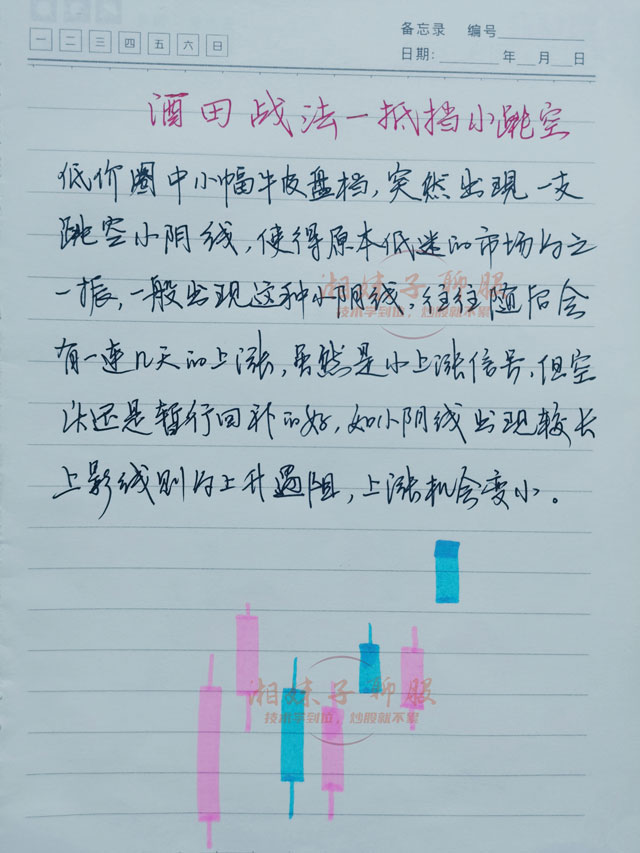 一 二 三 四 五 六 日
备忘录 编号
日期: 年 月 日
酒田战法一抵挡小跳空
低价圈中小幅牛皮盘档,突然出现一支
跳空小阴线,使得原本低迷的市场为之
一振,一般出现这种小阴线:往往随后会
有一连几天的上涨,虽然是小上涨信号,但空
头还是暂行回补的好,如小阴线出现较长
上影线则为上升遇阻,上涨机会变小。
湘妹子聊股
技术学到位,炒股就不累
湘妹子聊股
技术学到位,炒股就不累